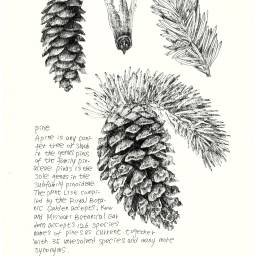 pine
A pine is any coni-
fer tree or shrub
in the genus pinus
of the family pin-
aceae. pinus is the
sole genus in the
subfamily pinoideae.
The plant List compi-
led by the Royal Bota-
nic Gardens accepts, Kew
and Missouri Botanical Gar
dens accepts 126 species
names of pines as current, together
with 35 unresolved species and many more
synonyms.